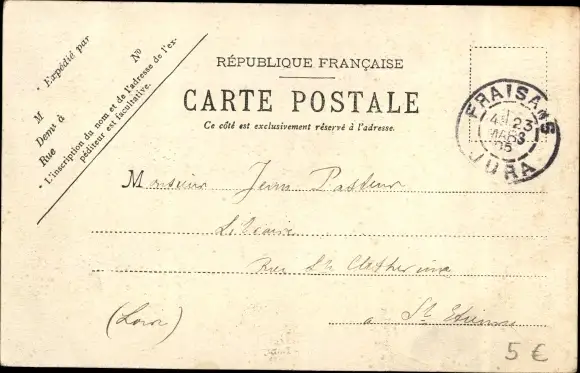 * Expédié par
M
Demt à
Rue
N°
* L'inscription du nom et de l'adresse de l'ex-
péditeur est facultative.
RÉPUBLIQUE FRANÇAISE
CARTE POSTALE
Ce côté est exclusivement réservé à l'adresse.
FRAISANS
23
MARS
05
JURA
Monsieur Jean Pasteur
Libraire
Rue Ste Catherine
(Loire) à St Etienne
5 €